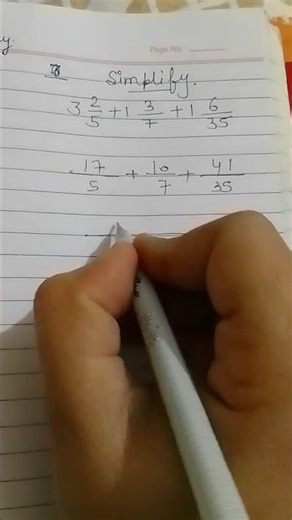 y
Page No
Simplify.
3 2/5 + 1 3/7 + 1 6/35
17/5 + 10/7 + 41/35